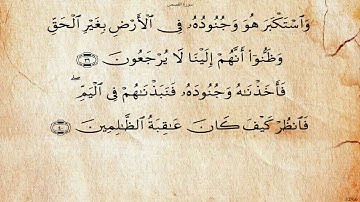 سورة القصص
وَٱسْتَكْبَرَ هُوَ وَجُنُودُهُۥ فِى ٱلْأَرْضِ بِغَيْرِ ٱلْحَقِّ
وَظَنُّوٓا۟ أَنَّهُمْ إِلَيْنَا لَا يُرْجَعُونَ ٣٩
فَأَخَذْنَٰهُ وَجُنُودَهُۥ فَنَبَذْنَٰهُمْ فِى ٱلْيَمِّ ۖ
فَٱنظُرْ كَيْفَ كَانَ عَٰقِبَةُ ٱلظَّٰلِمِينَ ٤٠